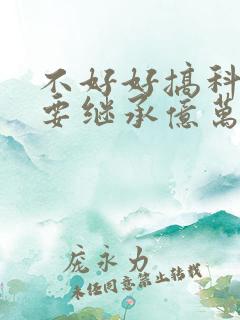 不好好搞科
要继承億萬
庞永力
未经同意禁止转载